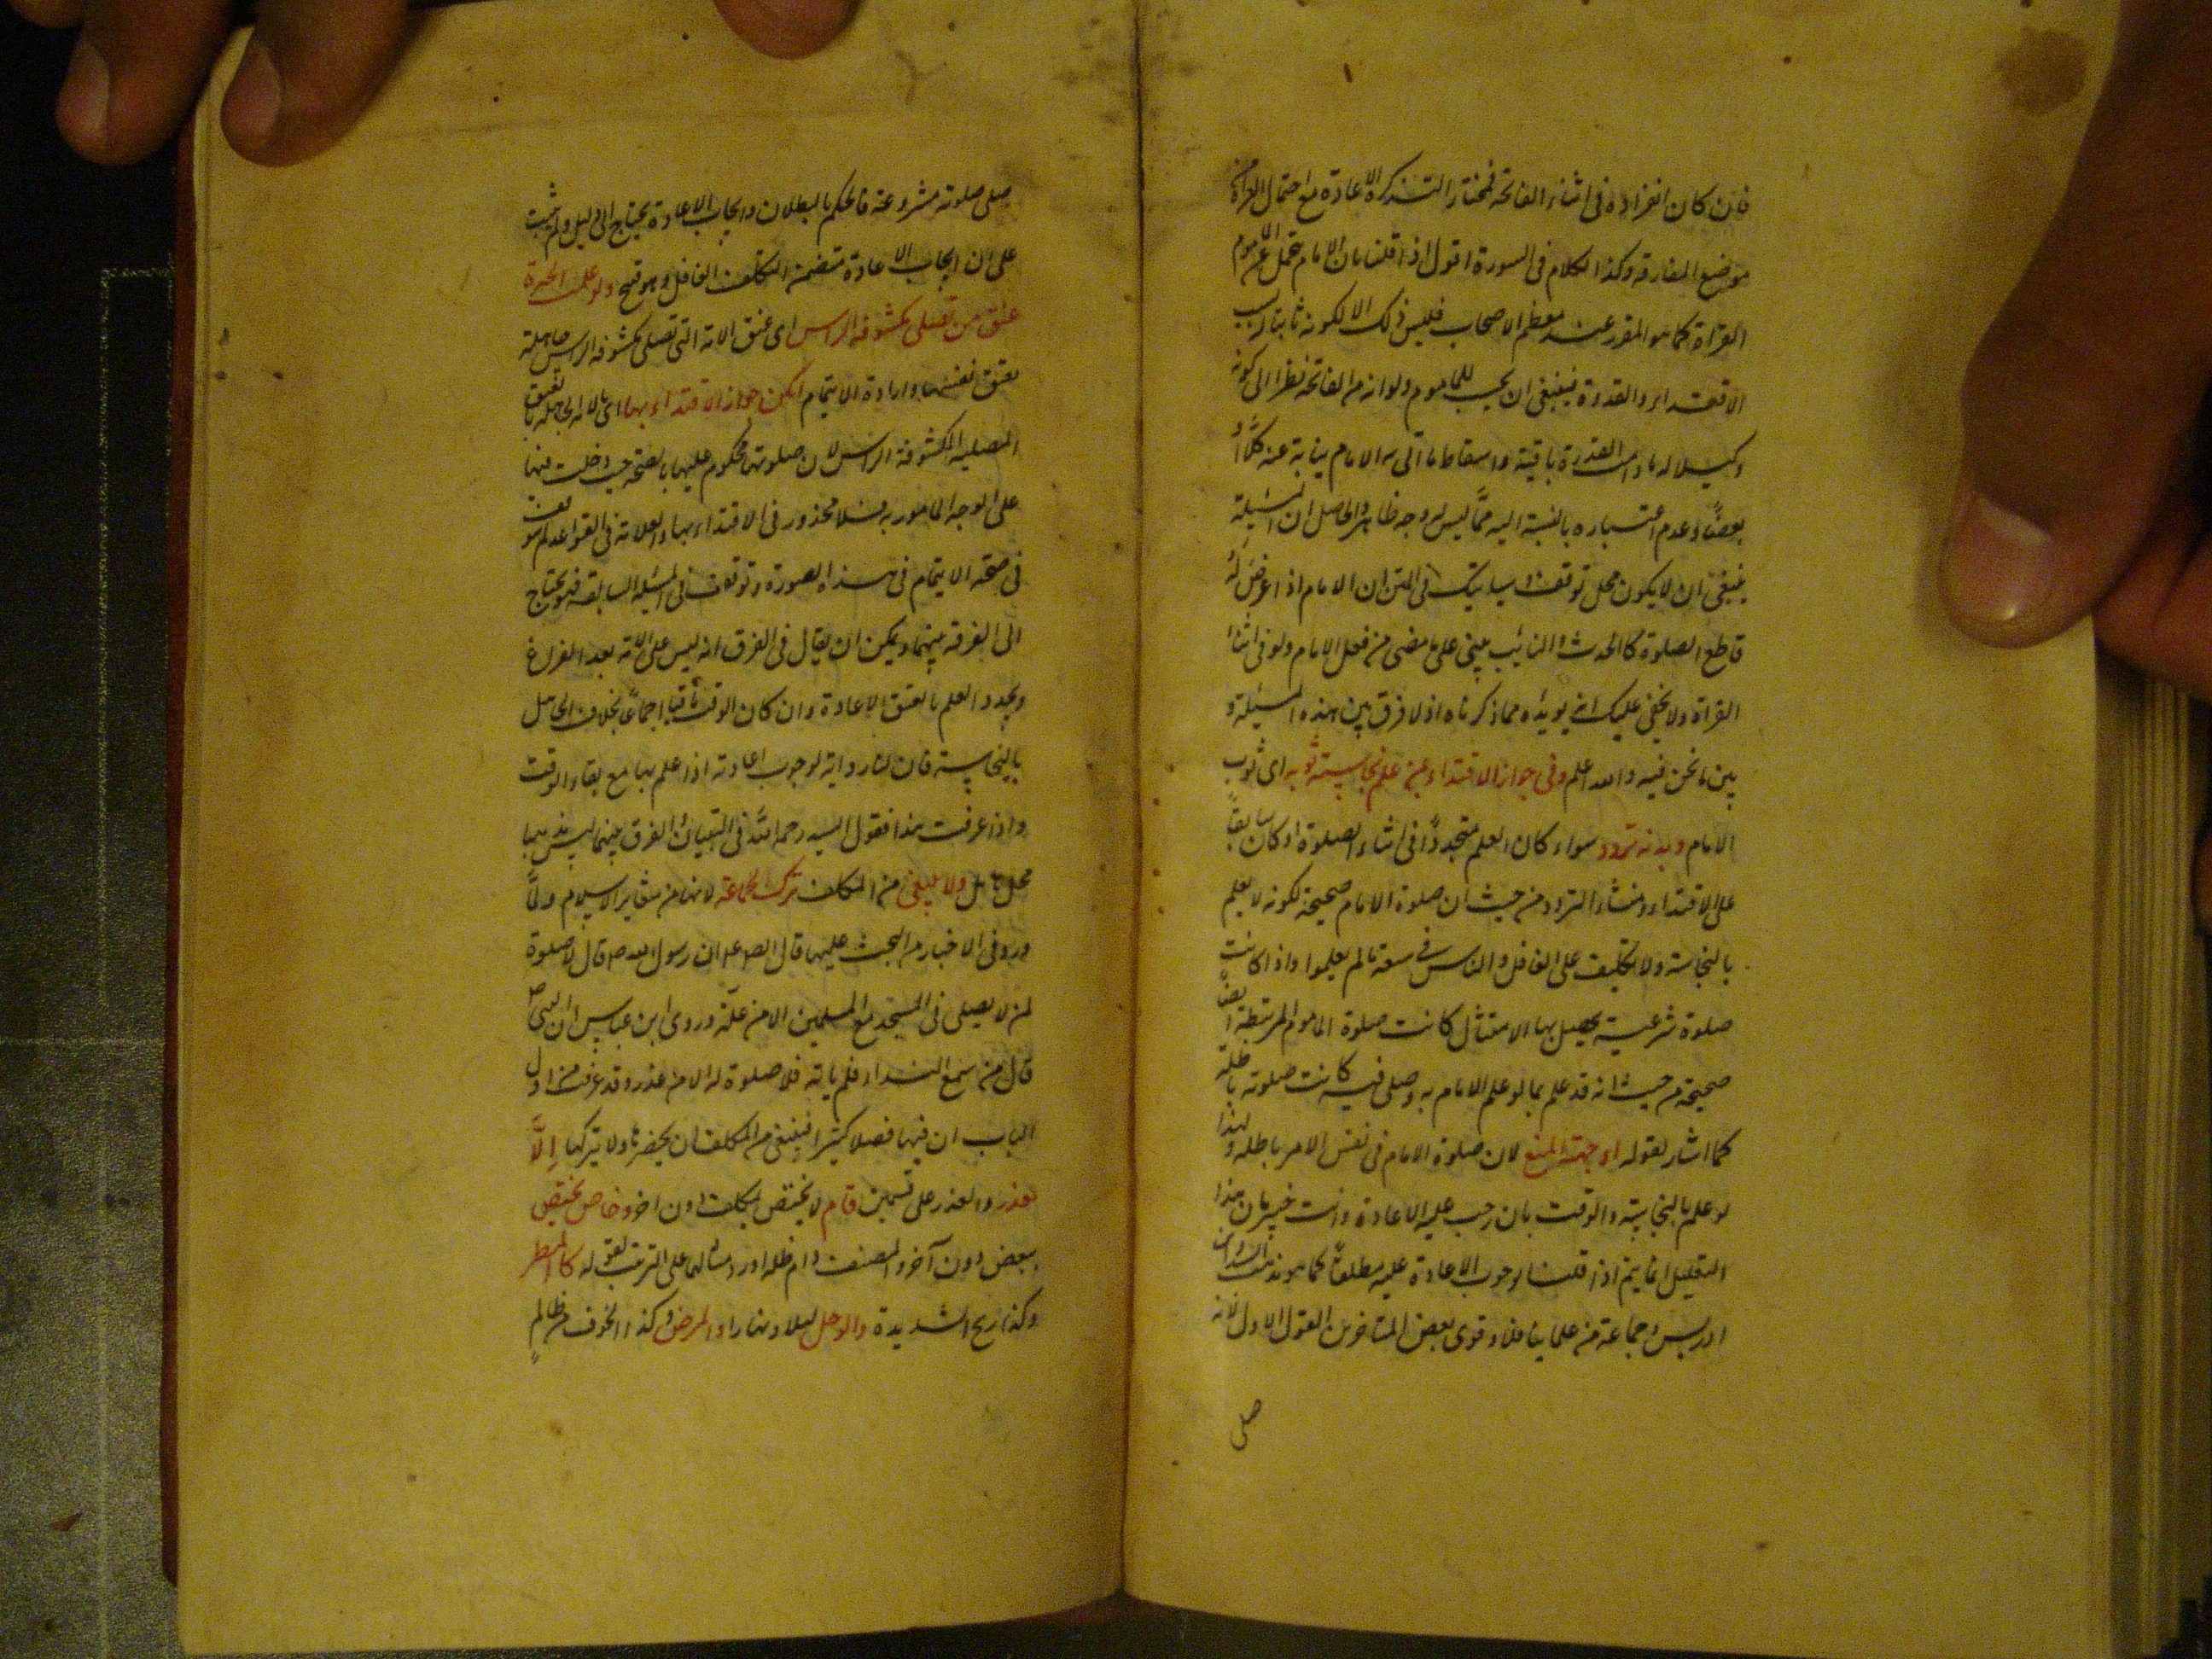 فان كان انفراده فى اثناء الفاتحة فمختار التذكرة الاعادة مع احتمال القراءة من
موضع المفارقة وكذا الكلام فى السورة اقول اذا قلنا بان الامام يتحمل عن الماموم
القراة كما هو المقرر عند معظم الاصحاب فليس ذلك الا لكونه نائبا له بسبب
الاقتداء والقدوة فينبغى ان يحسب للماموم ولوازم الفاتحة نظرا الى كونه
وكيلا له ما دامت القدرة باقية واسقاط ما اتى به الامام نيابة عنه كلًّا او
بعضًا وعدم اعتباره بالنسبة اليه ممّا ليس له وجه ظاهر والحاصل ان المسئلة
ينبغى ان لا يكون محل توقف وسياتيك فى المتن ان الامام اذا عرض له
قاطع الصلوة كالحدث فالنائب يبنى على ما مضى من فعل الامام ولو فى اثناء
القراة ولا يخفى عليك انه يؤيده مما ذكرناه اذ لا فرق بين هذه المسئلة و
بين ما نحن فيه والله اعلم وفى جواز الاقتداء بمن علم نجاسة ثوبه اى ثوب
الامام وبدنه تردد سواء كان العلم متجددًا فى اثناء الصلوة او كان سابقاً
على الاقتداء ومنشاء التردد من حيث ان صلوة الامام صحيحة لكونه لا يعلم
بالنجاسة ولا تكليف على الغافل والناس فى سعة ما لم يعلموا واذا كانت
صلوة شرعية يحصل بها الامتثال كانت صلوة الماموم المرتبطة ايضا
صحيحة من حيث انه قد علم بما لو علم الامام به وصلى فيه كانت صلوته باطلة
كما اشار بقوله اوجهه المنع لان صلوة الامام فى نفس الامر باطلة ولهذا
لو علم بالنجاسة والوقت باق وجب عليه الاعادة وانت خبير بان هذا
التعليل انما يتم اذا قلنا بوجوب الاعادة عليه مطلقًا كما هو مذهب ابن
ادريس وجماعة من علمائنا وقوى بعض المتاخرين القول الاول لانه
صلى
صلى صلوة مشروعة فالحكم بالبطلان وايجاب الاعادة يحتاج الى دليل ولم يثبت
على ان ايجاب الاعادة متضمن التكليف الغافل وهو قبيح ولو علمت الحرة
عتق من تصلى مكشوفة الراس اى عتق الامة التى تصلى مكشوفة الراس جاهلة
بعتق نفسها وارادة الايتمام امكن جواز الاقتداء بها اى بالامة الجاهلة بالعتق
المصلية المكشوفة الراس لان صلوتها محكوم عليها بالصحة حيث دخلت فيها
على الوجه المامور به فلا محذور فى الاقتداء بها والعلامة فى القواعد لم يتوقف
فى صحة الايتمام فى هذه الصورة وتوقف فى المسئلة السابقة فهو يحتاج
الى الفرق بينهما ويمكن ان يقال فى الفرق انه ليس على الامة بعد الفراغ
وتجدد العلم بالعتق الاعادة وان كان الوقت باقيا اجماعًا بخلاف الجاهل
بالنجاسة فان لنا رواية لوجوب اعادته اذا علم بها مع بقاء الوقت
واذا عرفت هذا فقول السيد رحمه الله فى التبيان الفرق بينهما ليس بذيهما
محل تامل ولا ينبغى من المكلف ترك الجماعة لانها من شعاير الاسلام ولما
ورد فى الاخبار من الحث عليها قال الصادق ع ان رسول الله ص قال لا صلوة
لمن لا يصلى فى المسجد مع المسلمين الا من علّة وروى ابن عباس ان النبى ص
قال من سمع النداء فلم ياته فلا صلوة له الا من عذر وقد عرفت من اول
الباب ان فيها فضلا كثيرا فينبغى من المكلف ان يحضرها ولا يتركها اِلّا
لعذر والعذر على قسمين فعام لا يختص بمكلف دون اخر وخاص يختص
ببعض دون آخر والمصنف دام ظله اورد مثالهما على الترتيب بقوله كالمطر
وكذا ريح الشديدة والوحل ليلا ونهارا والمرض وكذا الخوف من ظالم